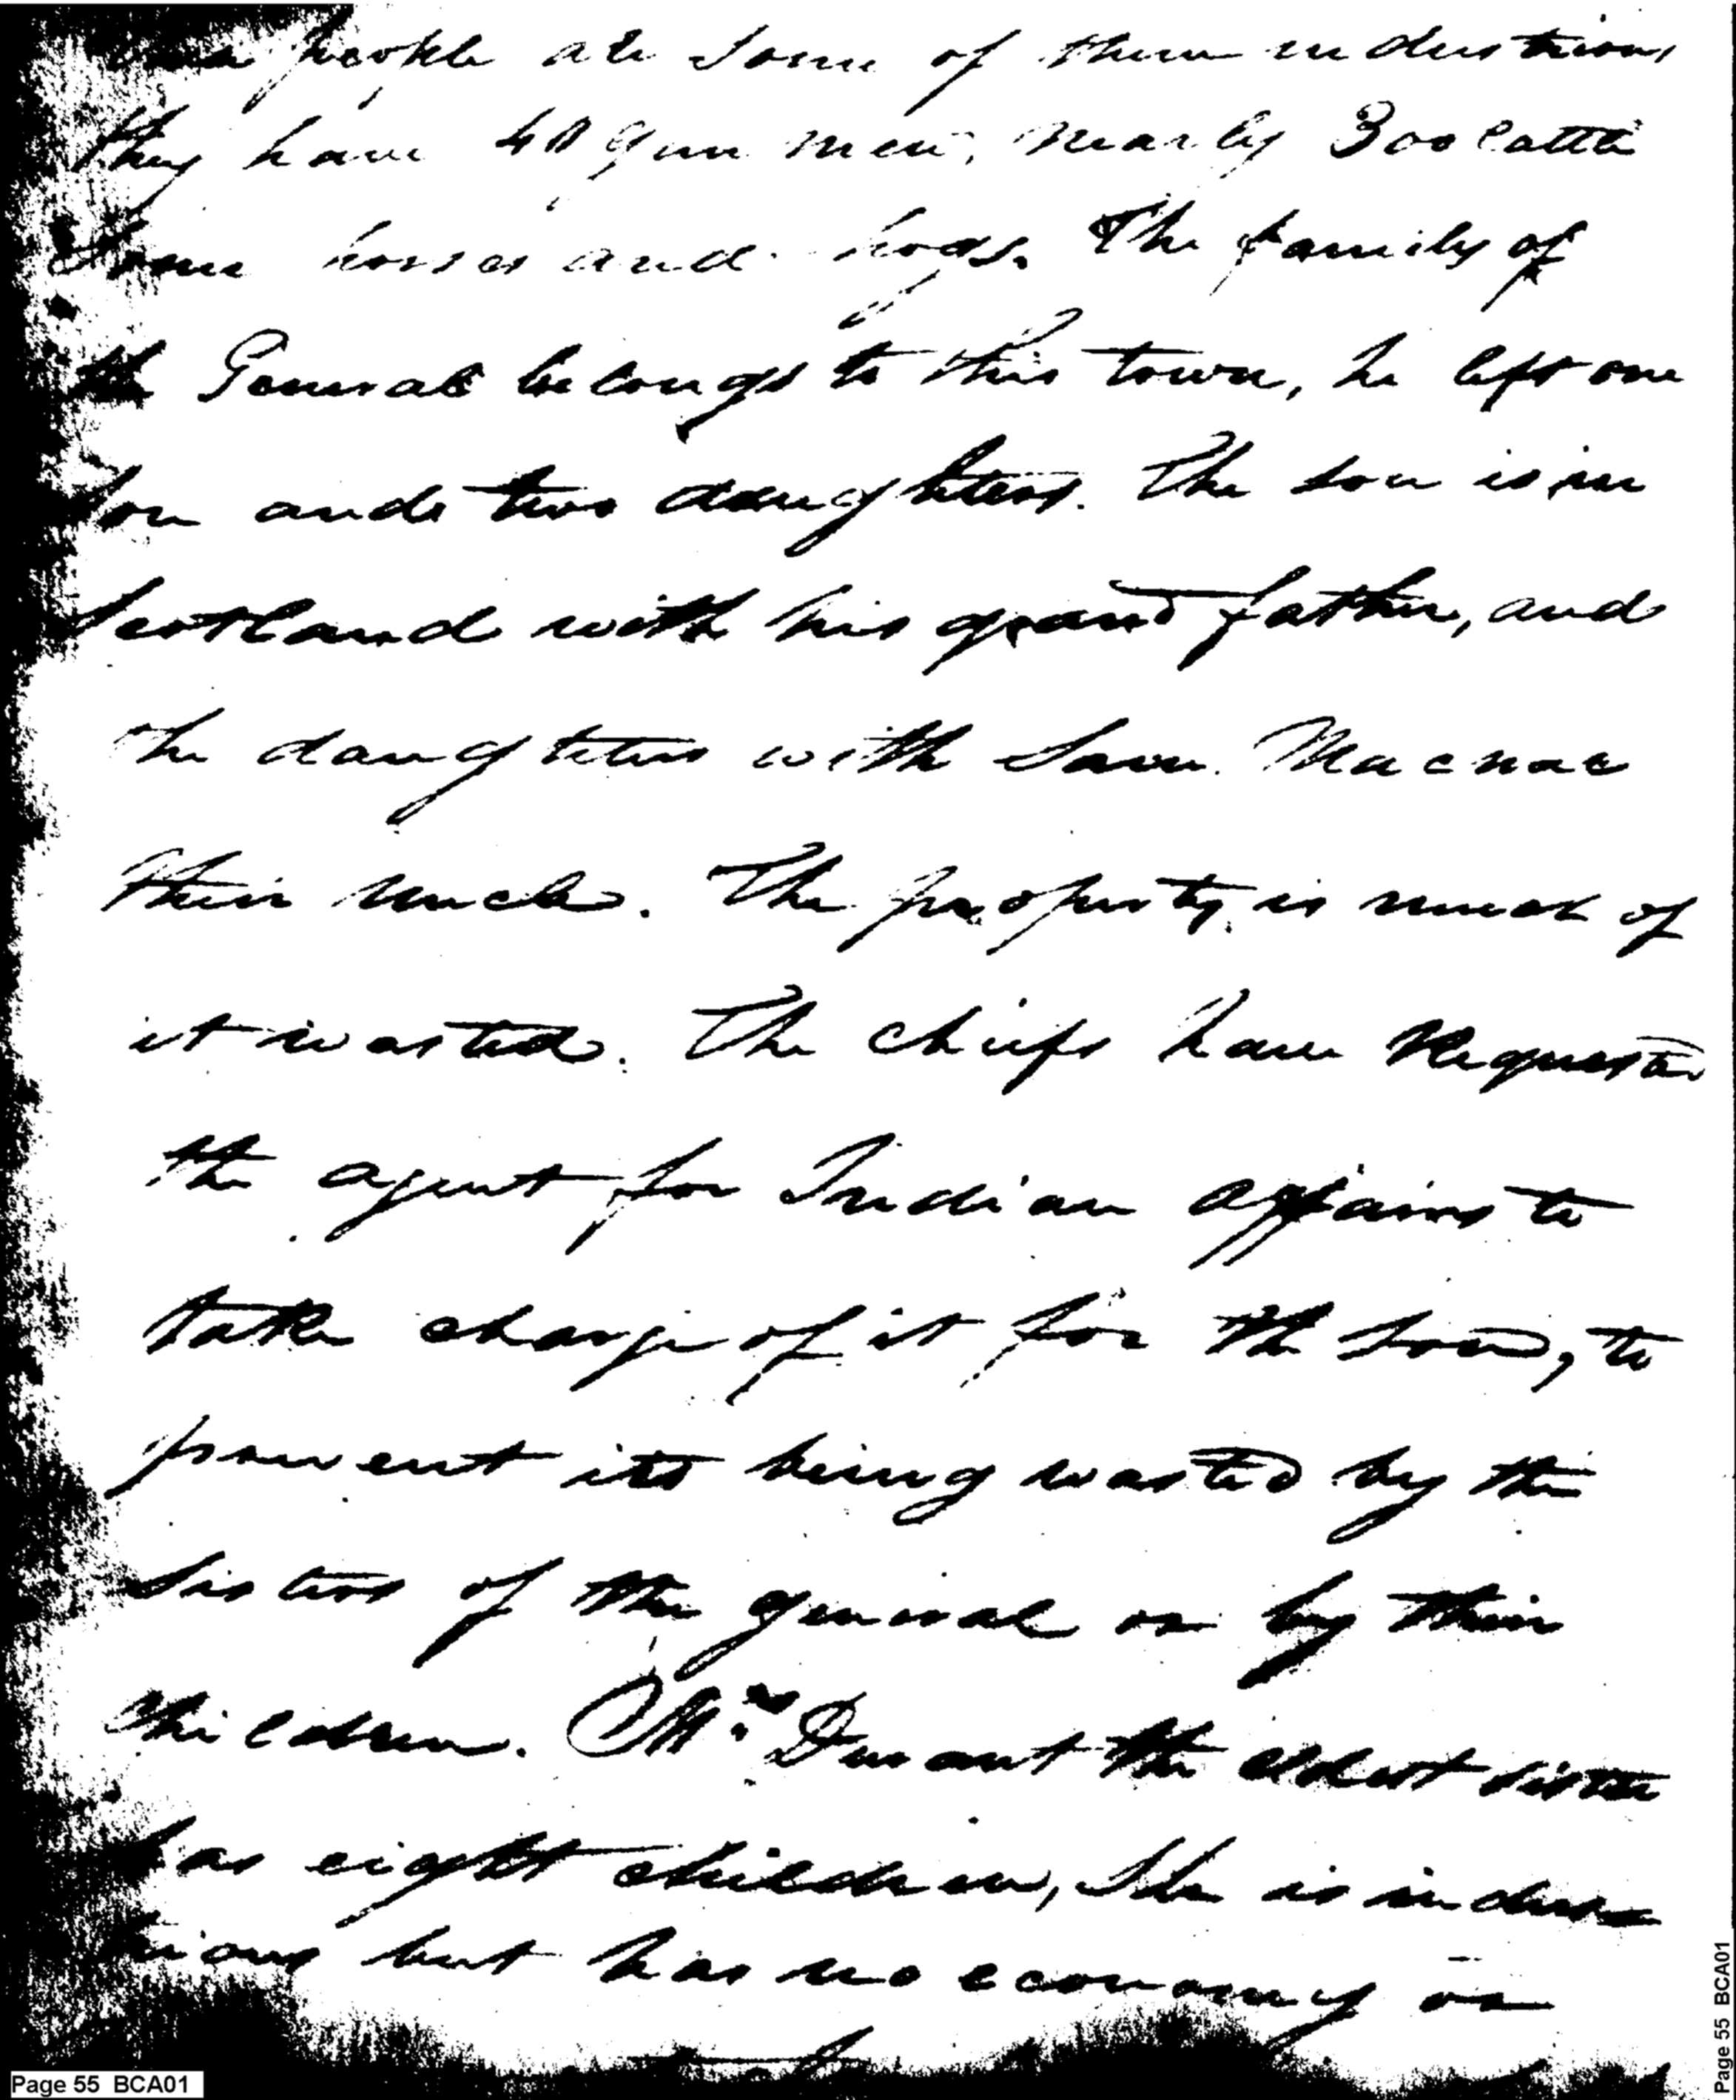 people are some of them industrious
they have 40 gun men, nearly 300 cattle
some horses and hogs. The family of
the General belongs to this town, he left one
son and two daughters. The son is in
Scotland with his grand father, and
the daughters with Sam. Macnac
their uncle. The property is much of
it wasted. The chiefs have requested
the agent for Indian affairs to
take charge of it for the son, to
prevent its being wasted by the
sisters of the general or by their
children. Mrs Durant the eldest sister
has eight children, she is indus=
trious but has no economy or
Page 55 BCA01
Page 55 BCA01